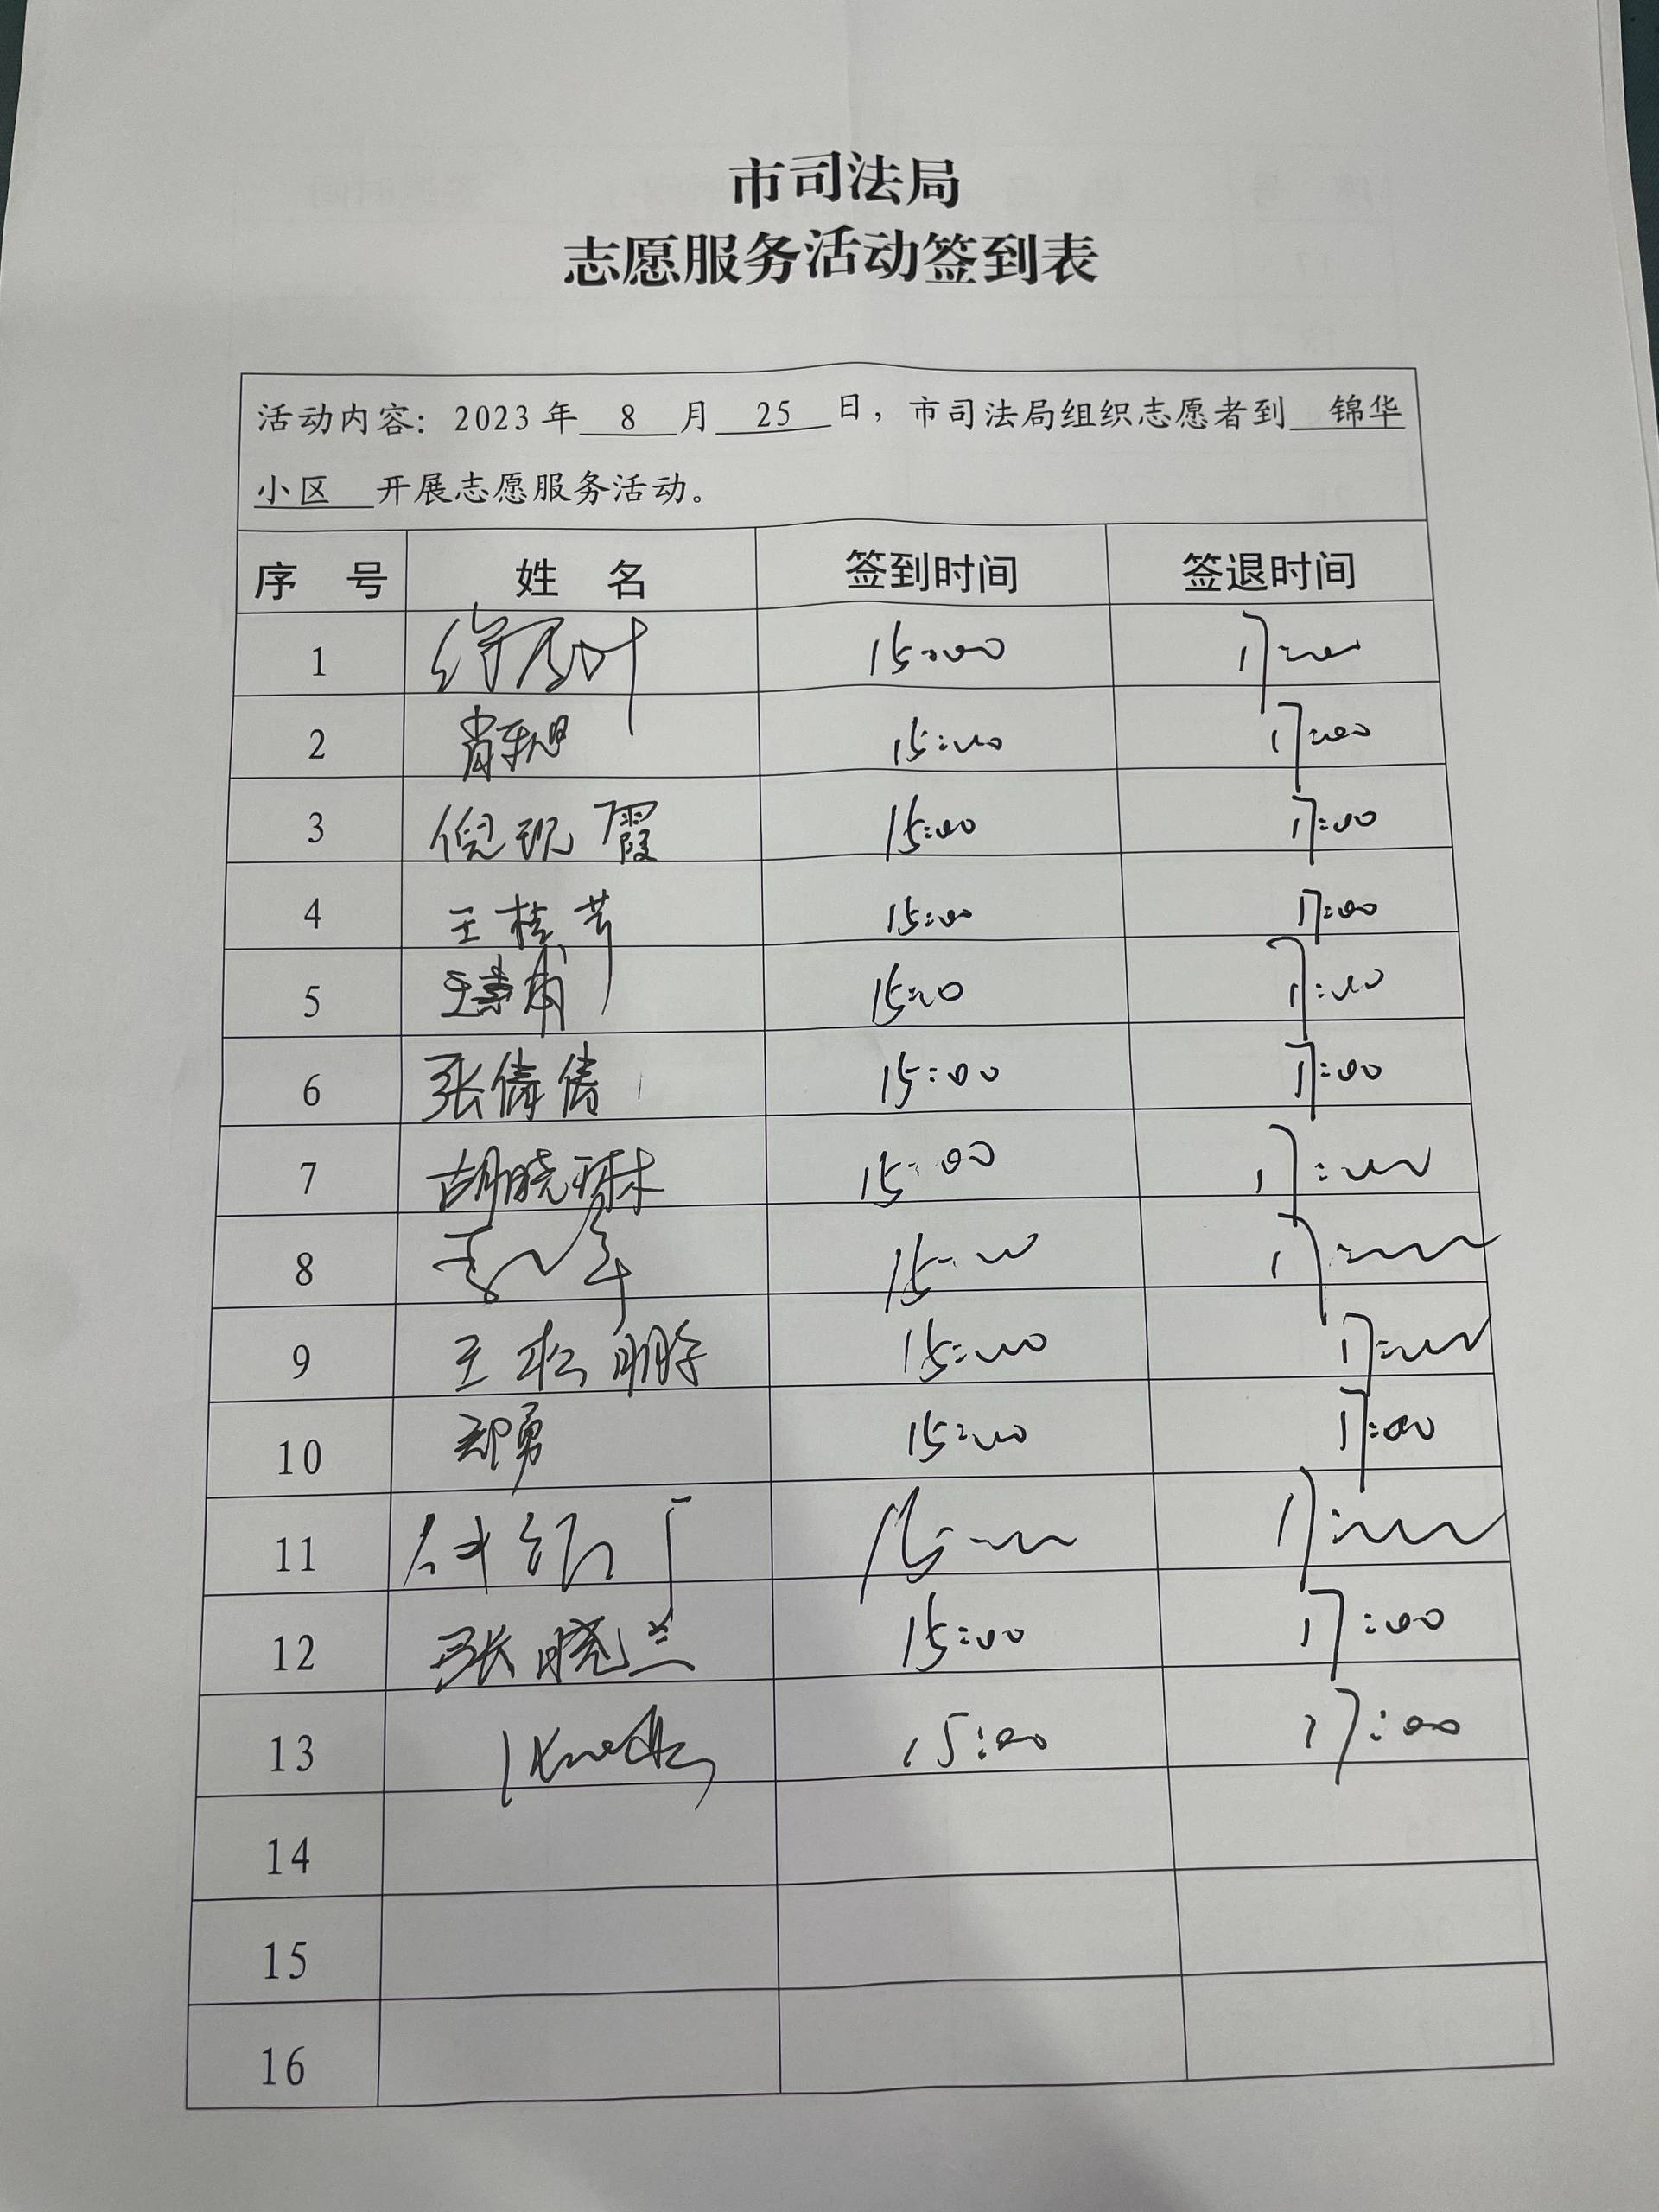 市司法局
志愿服务活动签到表
活动内容：2023年 8 月 25 日，市司法局组织志愿者到 锦华
小区 开展志愿服务活动。
序 号 姓 名 签到时间 签退时间
1 15:00 17:00
2 15:00 17:00
3 倪现霞 15:00 17:00
4 王桂芳 15:00 17:00
5 15:00 17:00
6 张倩倩 15:00 17:00
7 胡晓琳 15:00 17:00
8 15:00 17:00
9 王松鹏 15:00 17:00
10 郑勇 15:00 17:00
11 15:00 17:00
12 张晓兰 15:00 17:00
13 15:00 17:00
14
15
16